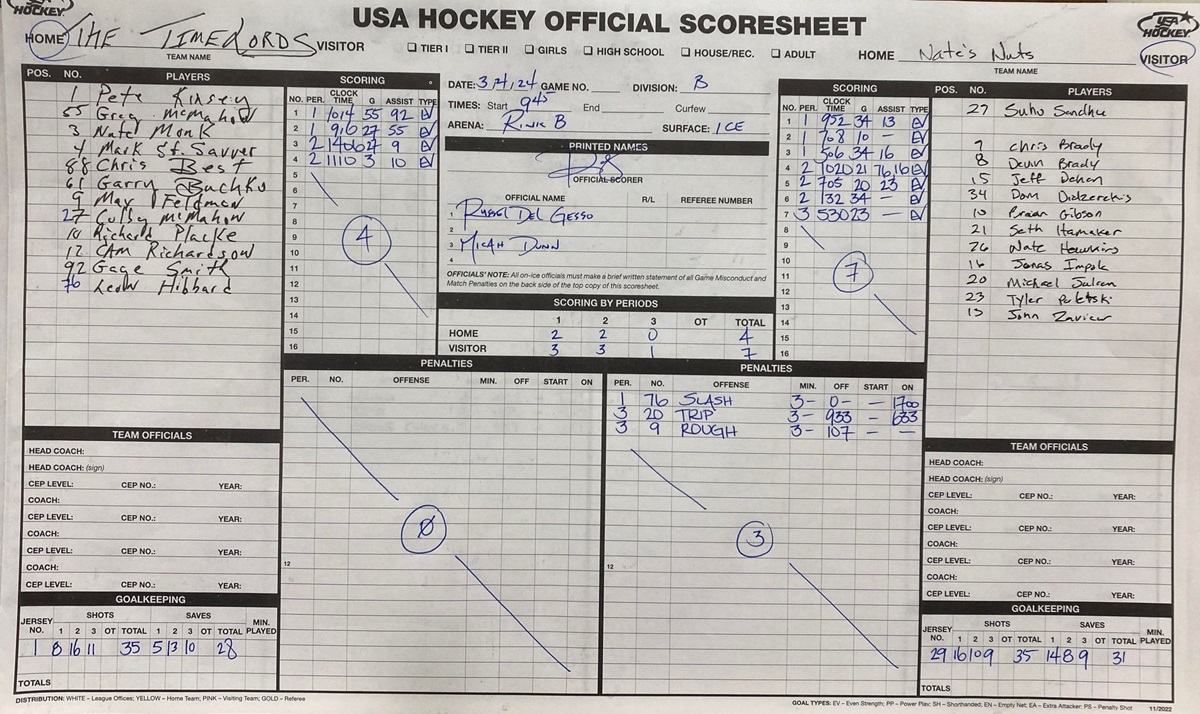 USA HOCKEY OFFICIAL SCORESHEET
HOCKEY
USA HOCKEY
HOME THE TIMELORDS VISITOR
TEAM NAME
☐ TIER I ☐ TIER II ☐ GIRLS ☐ HIGH SCHOOL ☐ HOUSE/REC. ☐ ADULT
HOME Nate's Nuts VISITOR
TEAM NAME
POS. NO. PLAYERS
1 Pete Kinsey
55 Greg McMahow
3 Natel Monk
4 Mark St. Savver
88 Chris Best
61 Garry Buchko
9 Max Feldmon
27 Colby McMahow
10 Richard Placke
12 CAM Richardsow
92 Gage Smith
76 Leow Hibbard
SCORING
NO. PER. CLOCK TIME G ASSIST TYPE
1 1 1014 55 92 EV
2 1 916 27 55 EV
3 2 1406 27 9 EV
4 2 1110 3 10 EV
5
6
7
8
9
10
11
12
13
14
15
16
4
DATE: 3/4/24 GAME NO. DIVISION: B
TIMES: Start 945 End Curfew
ARENA: RINK B SURFACE: ICE
PRINTED NAMES
OFFICIAL SCORER
OFFICIAL NAME R/L REFEREE NUMBER
1 RUSSEL DEL GESSO
2
3 MICAH DUNN
4
OFFICIALS' NOTE: All on-ice officials must make a brief written statement of all Game Misconduct and
Match Penalties on the back side of the top copy of this scoresheet.
SCORING BY PERIODS
1 2 3 OT TOTAL
HOME 2 2 0 4
VISITOR 3 3 1 7
SCORING
NO. PER. CLOCK TIME G ASSIST TYPE
1 1 952 34 13 EV
2 1 708 10 – EV
3 1 506 34 16 EV
4 2 1020 21 76,16 EV
5 2 705 20 23 EV
6 2 132 34 – EV
7 3 530 23 – EV
8
9
10
11
12
13
14
15
16
7
POS. NO. PLAYERS
27 Suho Sandhu
7 Chris Brady
8 Devin Brady
15 Jeff Dehan
34 Dom
10 Brian Gibson
21 Seth Hamaker
26 Nate Hawkins
16 Jonas Impola
20 Michael
23 Tyler
13 John Zavier
PENALTIES
PER. NO. OFFENSE MIN. OFF START ON
12
0
PENALTIES
PER. NO. OFFENSE MIN. OFF START ON
1 76 SLASH 3- 0- – 1700
3 20 TRIP 3- 933 – 633
3 9 ROUGH 3- 107 – –
12
3
TEAM OFFICIALS
HEAD COACH:
HEAD COACH: (sign)
CEP LEVEL: CEP NO.: YEAR:
COACH:
CEP LEVEL: CEP NO.: YEAR:
COACH:
CEP LEVEL: CEP NO.: YEAR:
COACH:
CEP LEVEL: CEP NO.: YEAR:
TEAM OFFICIALS
HEAD COACH:
HEAD COACH: (sign)
CEP LEVEL: CEP NO.: YEAR:
COACH:
CEP LEVEL: CEP NO.: YEAR:
COACH:
CEP LEVEL: CEP NO.: YEAR:
COACH:
CEP LEVEL: CEP NO.: YEAR:
GOALKEEPING
JERSEY NO. SHOTS 1 2 3 OT TOTAL SAVES 1 2 3 OT TOTAL MIN. PLAYED
1 8 16 11 35 5 13 10 28
TOTALS
GOALKEEPING
JERSEY NO. SHOTS 1 2 3 OT TOTAL SAVES 1 2 3 OT TOTAL MIN. PLAYED
29 16 10 9 35 14 8 9 31
TOTALS
DISTRIBUTION: WHITE – League Offices; YELLOW – Home Team; PINK – Visiting Team; GOLD – Referee
GOAL TYPES: EV – Even Strength; PP – Power Play; SH – Shorthanded; EN – Empty Net; EA – Extra Attacker; PS – Penalty Shot 11/2022